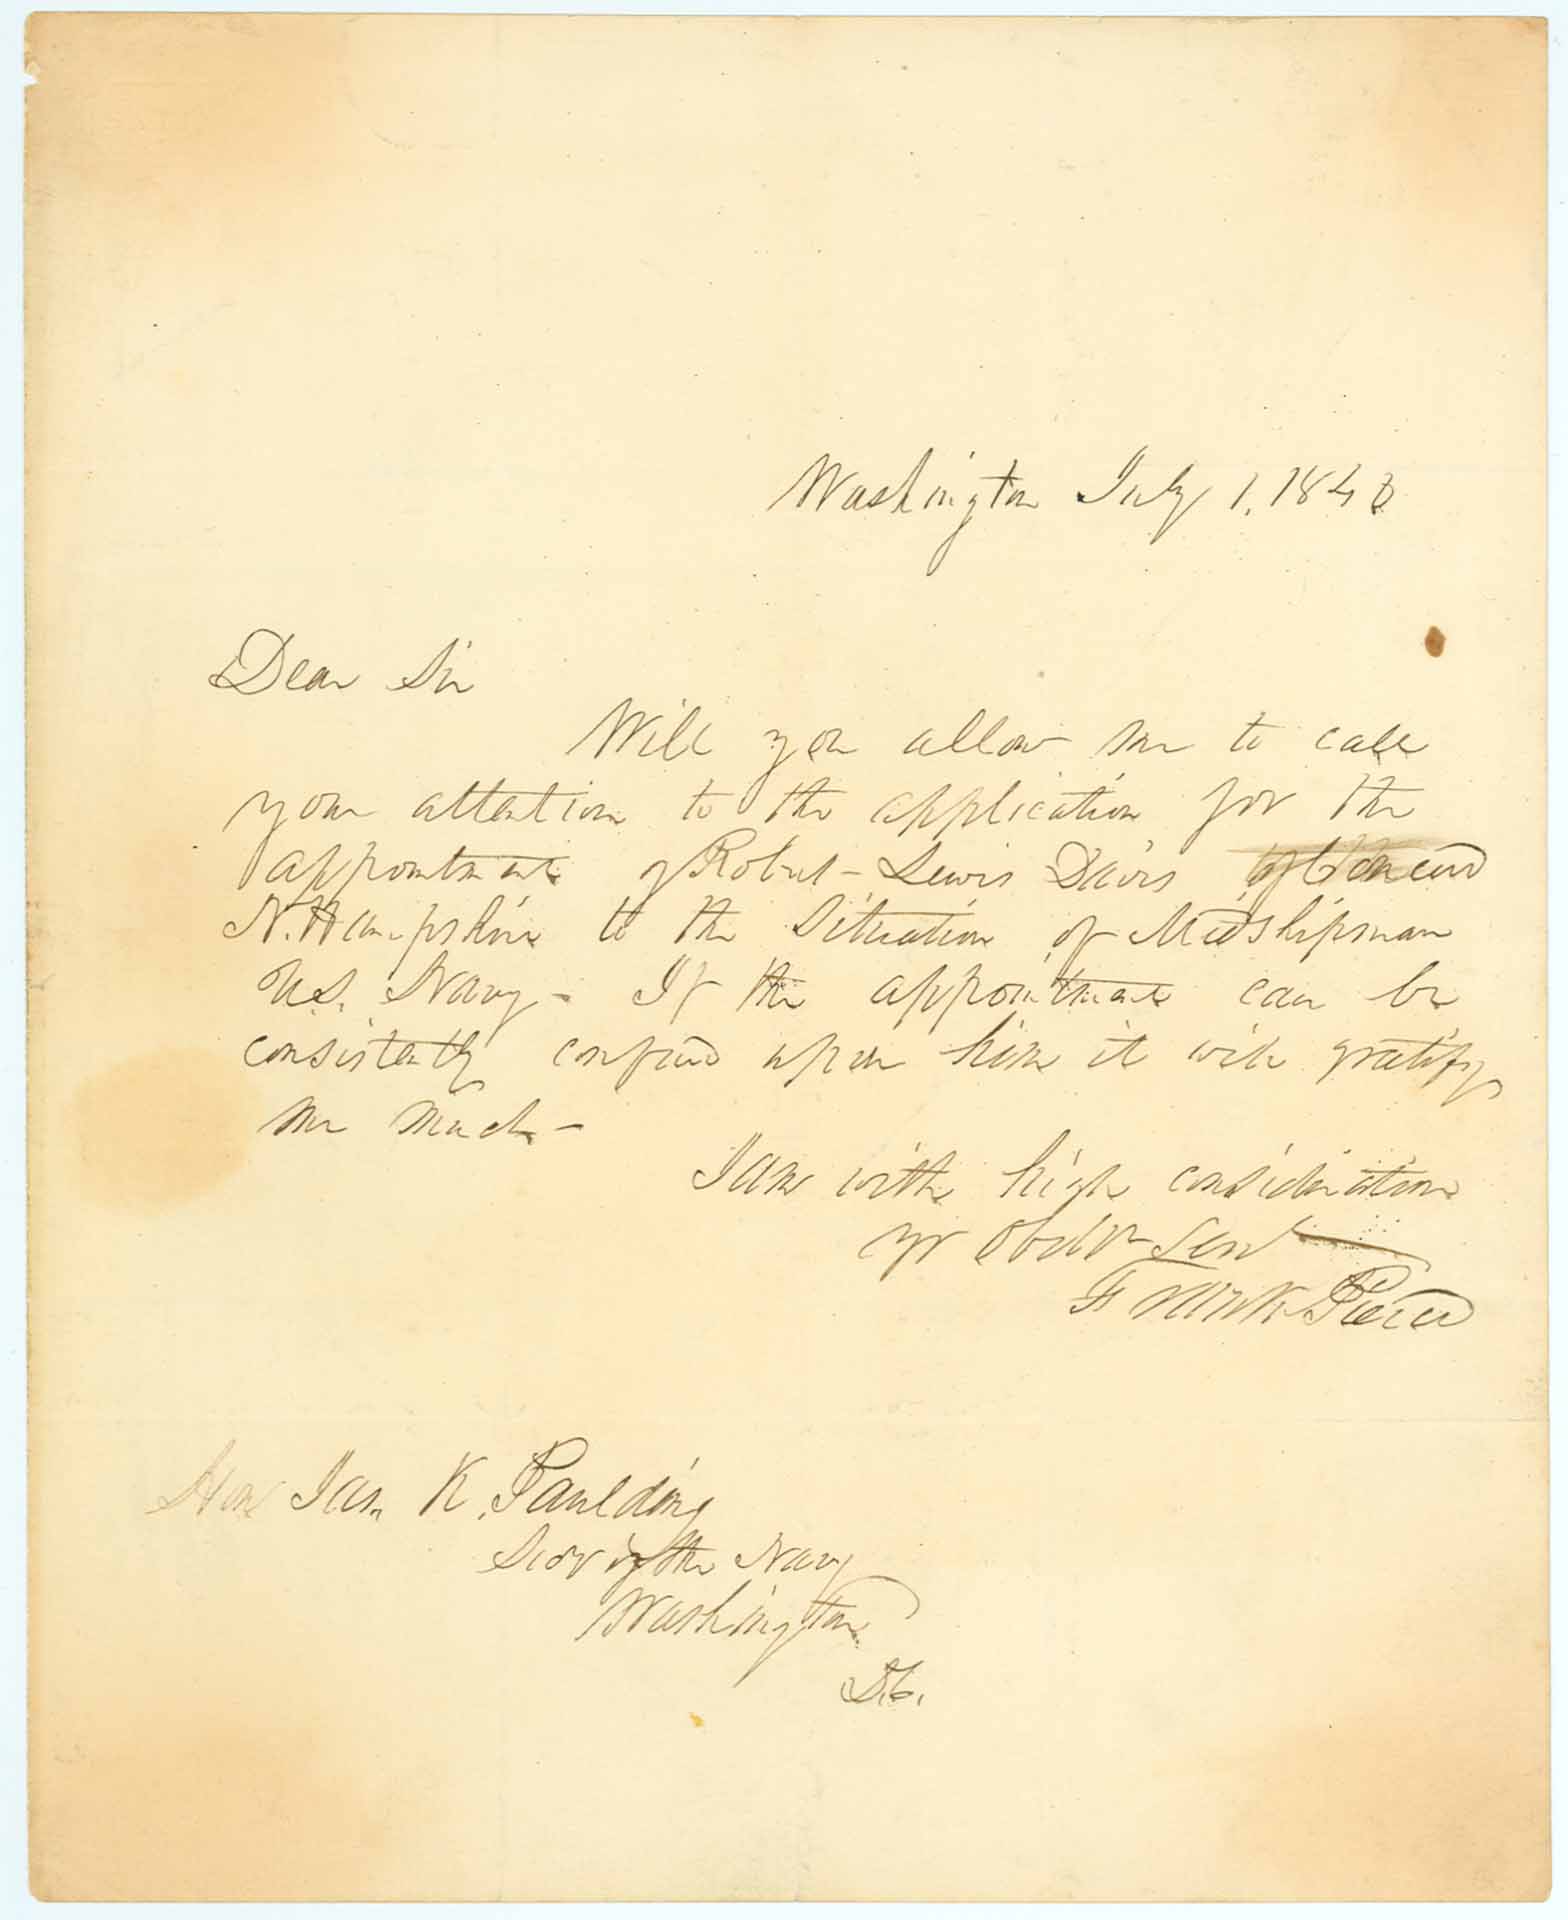 Washington July 1, 1840
Dear Sir
Will you allow me to call
your attention to the application for the
appointment of Robert Lewis Davis of Concord
N. Hampshire to the situation of Midshipman
U.S. Navy - If the appointment can be
consistently conferred upon him it will gratify
me much -
I am with high consideration
yr Obdt Servt
Frank Pierce
Hon Jas. K. Paulding
Secy of the Navy
Washington
D.C.